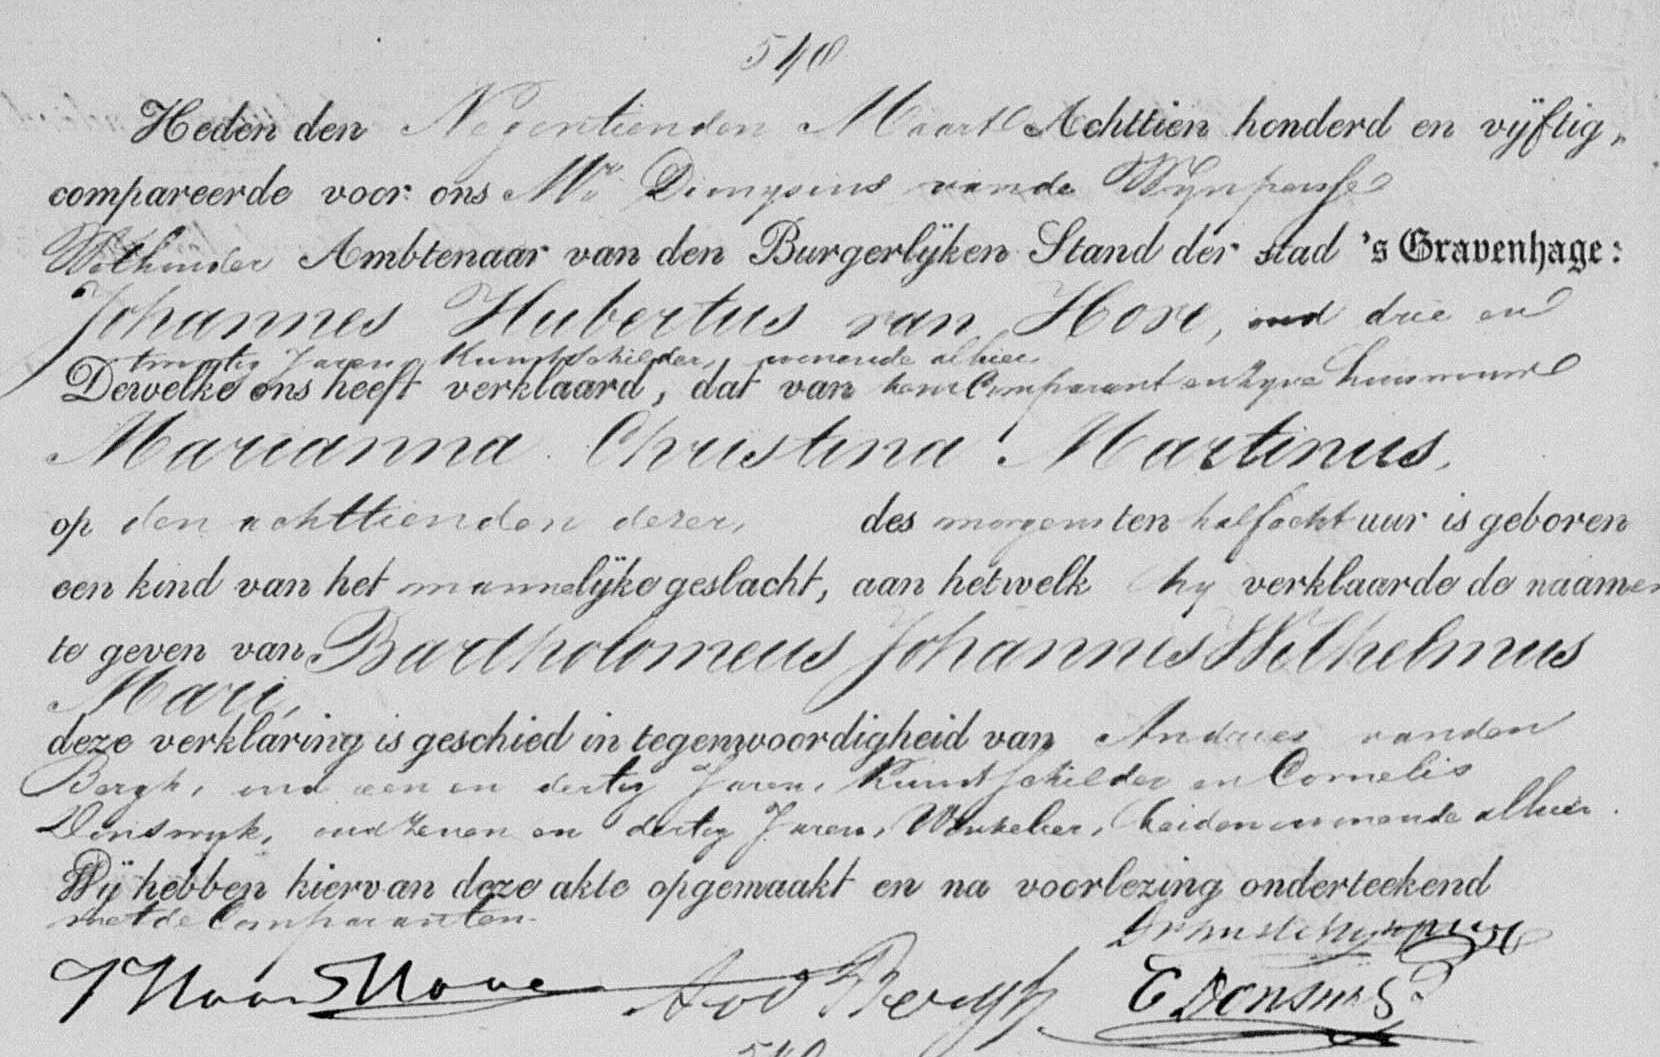 540
Heden den Negentienden Maart Achttien honderd en vijftig,
compareerde voor ons Mr. Dionysius van de Wynpersse
Wethouder Ambtenaar van den Burgerlijken Stand der stad 's Gravenhage:
Johannes Hubertus van Hove, oud drie en
twintig Jaren, Kunstschilder, wonende alhier.
Dewelke ons heeft verklaard, dat van hem Comparant en zyne huisvrouw
Marianna Christina Martinus,
op den achttienden dezer, des morgens ten half acht uur is geboren
een kind van het mannelijke geslacht, aan hetwelk hy verklaarde de naamen
te geven van Bartholomeus Johannes Wilhelmus
Mari,
deze verklaring is geschied in tegenwoordigheid van Andries van den
Bergh, oud een en dertig Jaren, Kunstschilder en Cornelis
oud zeven en dertig Jaren, Winkelier, beiden wonende alhier.
Wij hebben hiervan deze akte opgemaakt en na voorlezing onderteekend
met de Comparanten.
H van Hove A vd Bergh C
540